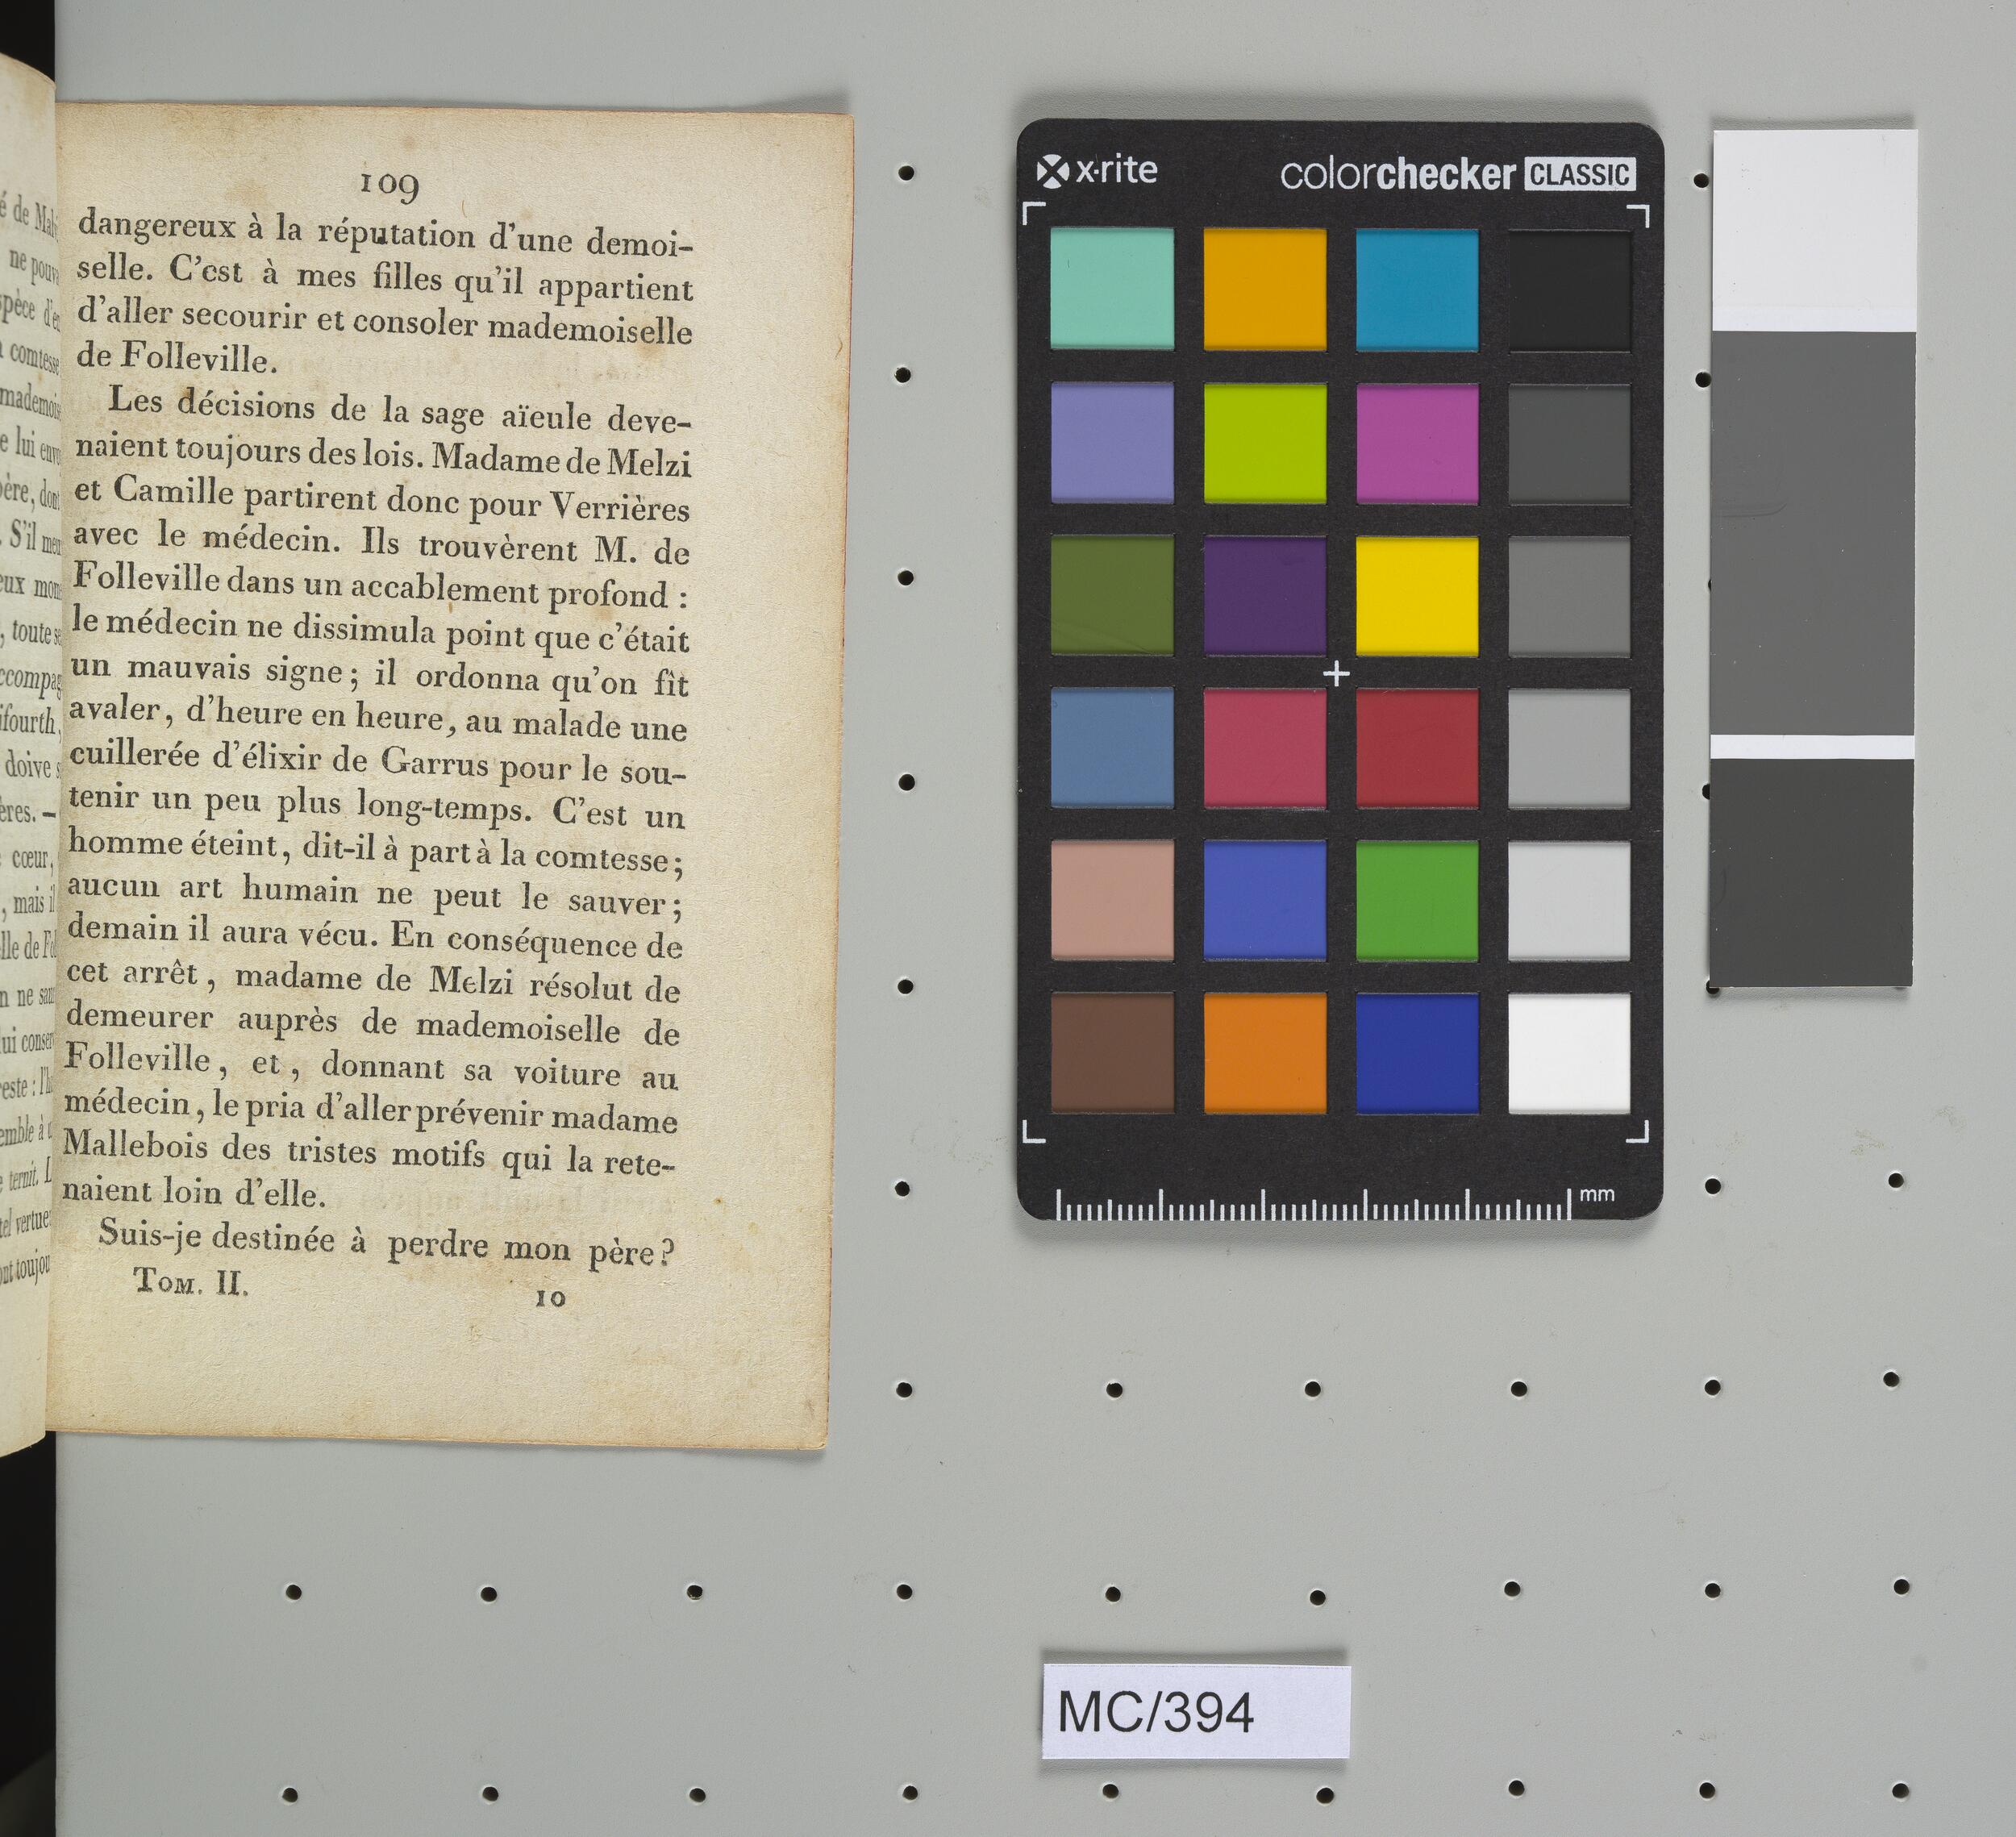 109
dangereux à la réputation d'une demoi-
selle. C'est à mes filles qu'il appartient
d'aller secourir et consoler mademoiselle
de Folleville.
Les décisions de la sage aïeule deve-
naient toujours des lois. Madame de Melzi
et Camille partirent donc pour Verrières
avec le médecin. Ils trouvèrent M. de
Folleville dans un accablement profond :
le médecin ne dissimula point que c'était
un mauvais signe; il ordonna qu'on fît
avaler, d'heure en heure, au malade une
cuillerée d'élixir de Garrus pour le sou-
tenir un peu plus long-temps. C'est un
homme éteint, dit-il à part à la comtesse;
aucun art humain ne peut le sauver;
demain il aura vécu. En conséquence de
cet arrêt, madame de Melzi résolut de
demeurer auprès de mademoiselle de
Folleville, et, donnant sa voiture au
médecin, le pria d'aller prévenir madame
Mallebois des tristes motifs qui la rete-
naient loin d'elle.
Suis-je destinée à perdre mon père?
Tom. II. 10
x·rite colorchecker CLASSIC
mm
MC/394